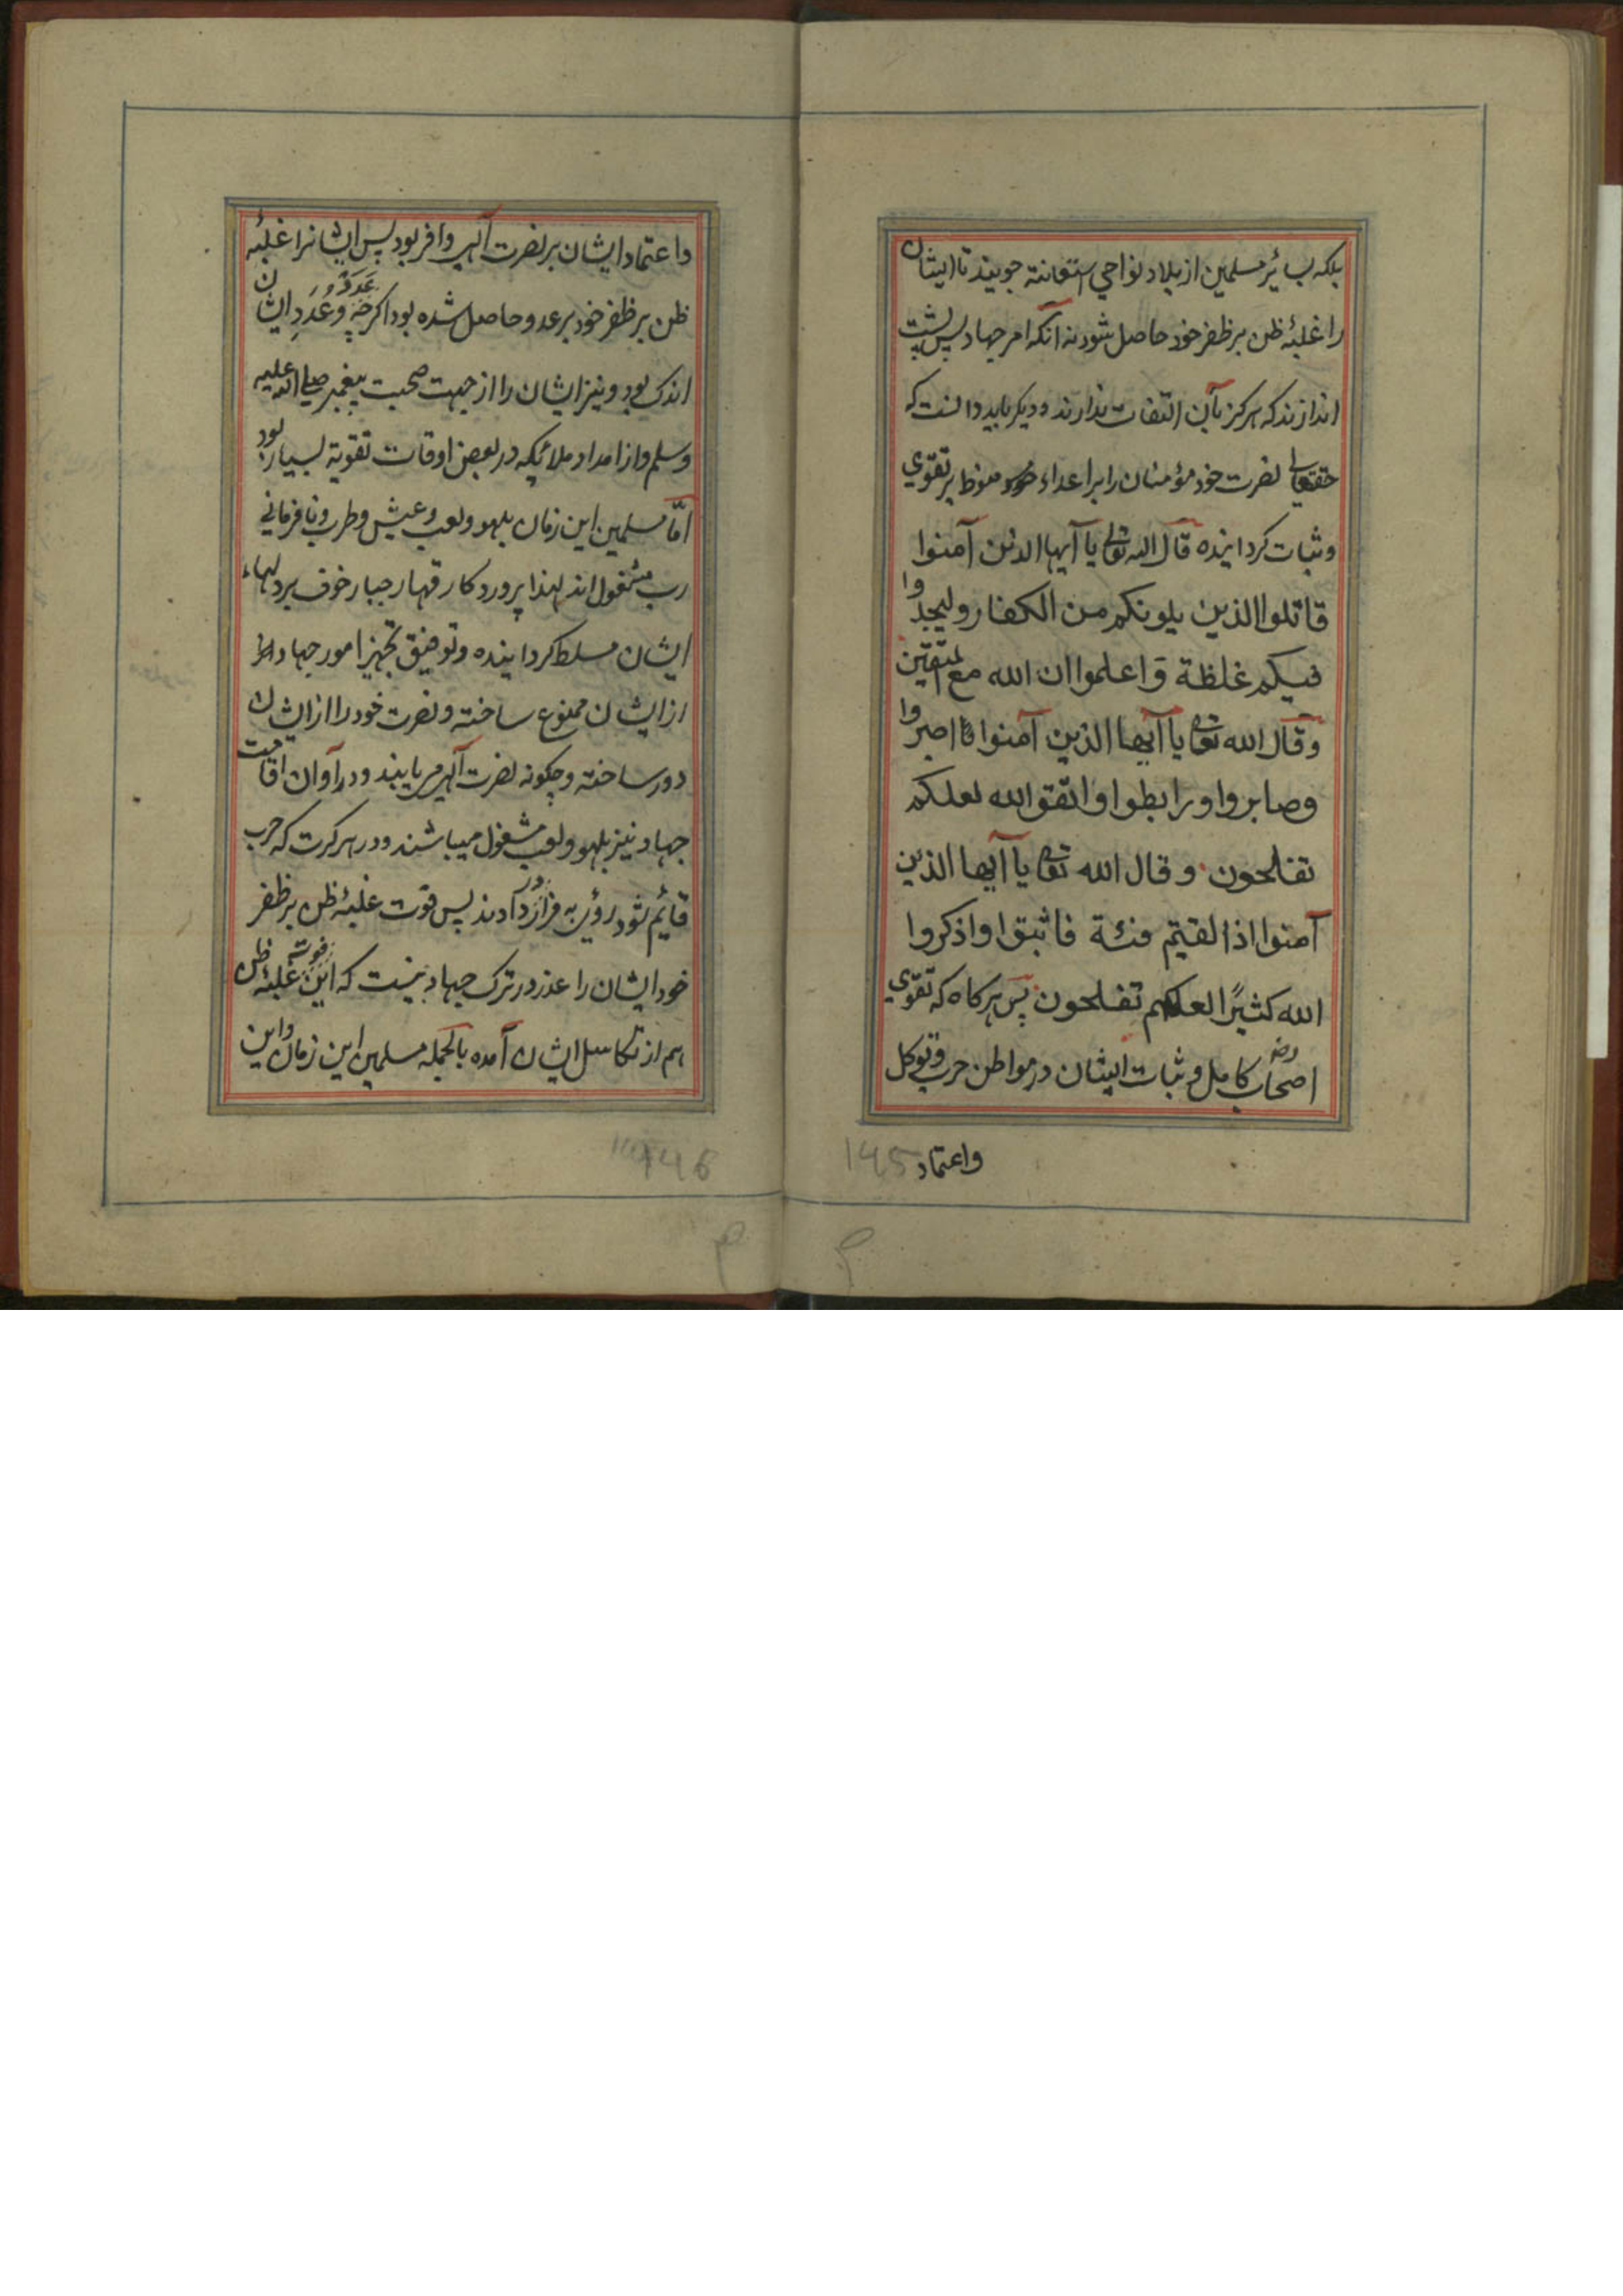 بلکه بسائر مسلمین از بلاد نواحی استعانة جویند تا ایشان
را غلبهٔ ظن بر ظفر خود حاصل شود نه آنکه امر جهاد پس پشت
اندازند که هرکز بآن التفات ندارند و دیکر باید دانست که
حقتعالی نصرت خود مؤمنان را بر اعداء منوط بر تقوي
و ثبات کردانیده قال الله تعالی یا آیها الذین آمنوا
قاتلوا الذین یلونکم من الکفار ولیجدوا
فیکم غلظة واعلموا ان الله مع المتقین
وقال الله تعالی یا آیها الذین آمنوا اصبروا
وصابروا ورابطوا واتقوا الله لعلکم
تفلحون وقال الله تعالی یا آیها الذین
آمنوا اذا لقیتم فئة فاثبتوا واذکروا
الله کثیرًا لعلکم تفلحون پس هرکاه که تقوي
اصحاب رضه کامل و ثبات ایشان در مواطن حرب و توکل
واعتماد
145
واعتماد ایشان بر نصرت آلهی وافر بود پس ایشانرا غلبهٔ
ظن بر ظفر خود بر عدو حاصل شده بود اکرچه عُدَد و عَدَدِ ایشان
اندک بود و نیز ایشان را از جهت صحبت پیغمبر صلی الله علیه
وسلم و از امداد ملائکه در بعض اوقات تقویة بسیار بود
امّا مسلمین این زمان بلهو و لعب و عیش و طرب و نافرمانی
رب مشغول اند لهذا پروردکار قهار جبار خوف بر دلهاء
ایشان مسلط کردانیده و توفیق تجهیز امور جهاد را
از ایشان ممنوع ساخته و نصرت خود را از ایشان
دور ساخته و چکونه نصرت آلهی می یابند و در آوان اقامت
جهاد نیز بلهو و لعب مشغول میباشند و در هر کرت که حرب
قائم شود روی به فرار در آورند پس فوت غلبهٔ ظن بر ظفر
خود ایشان را عذر در ترک جهاد نیست که این فوت غلبهٔ ظن
هم از تکاسل ایشان آمده بالجمله مسلمین این زمان و این
146